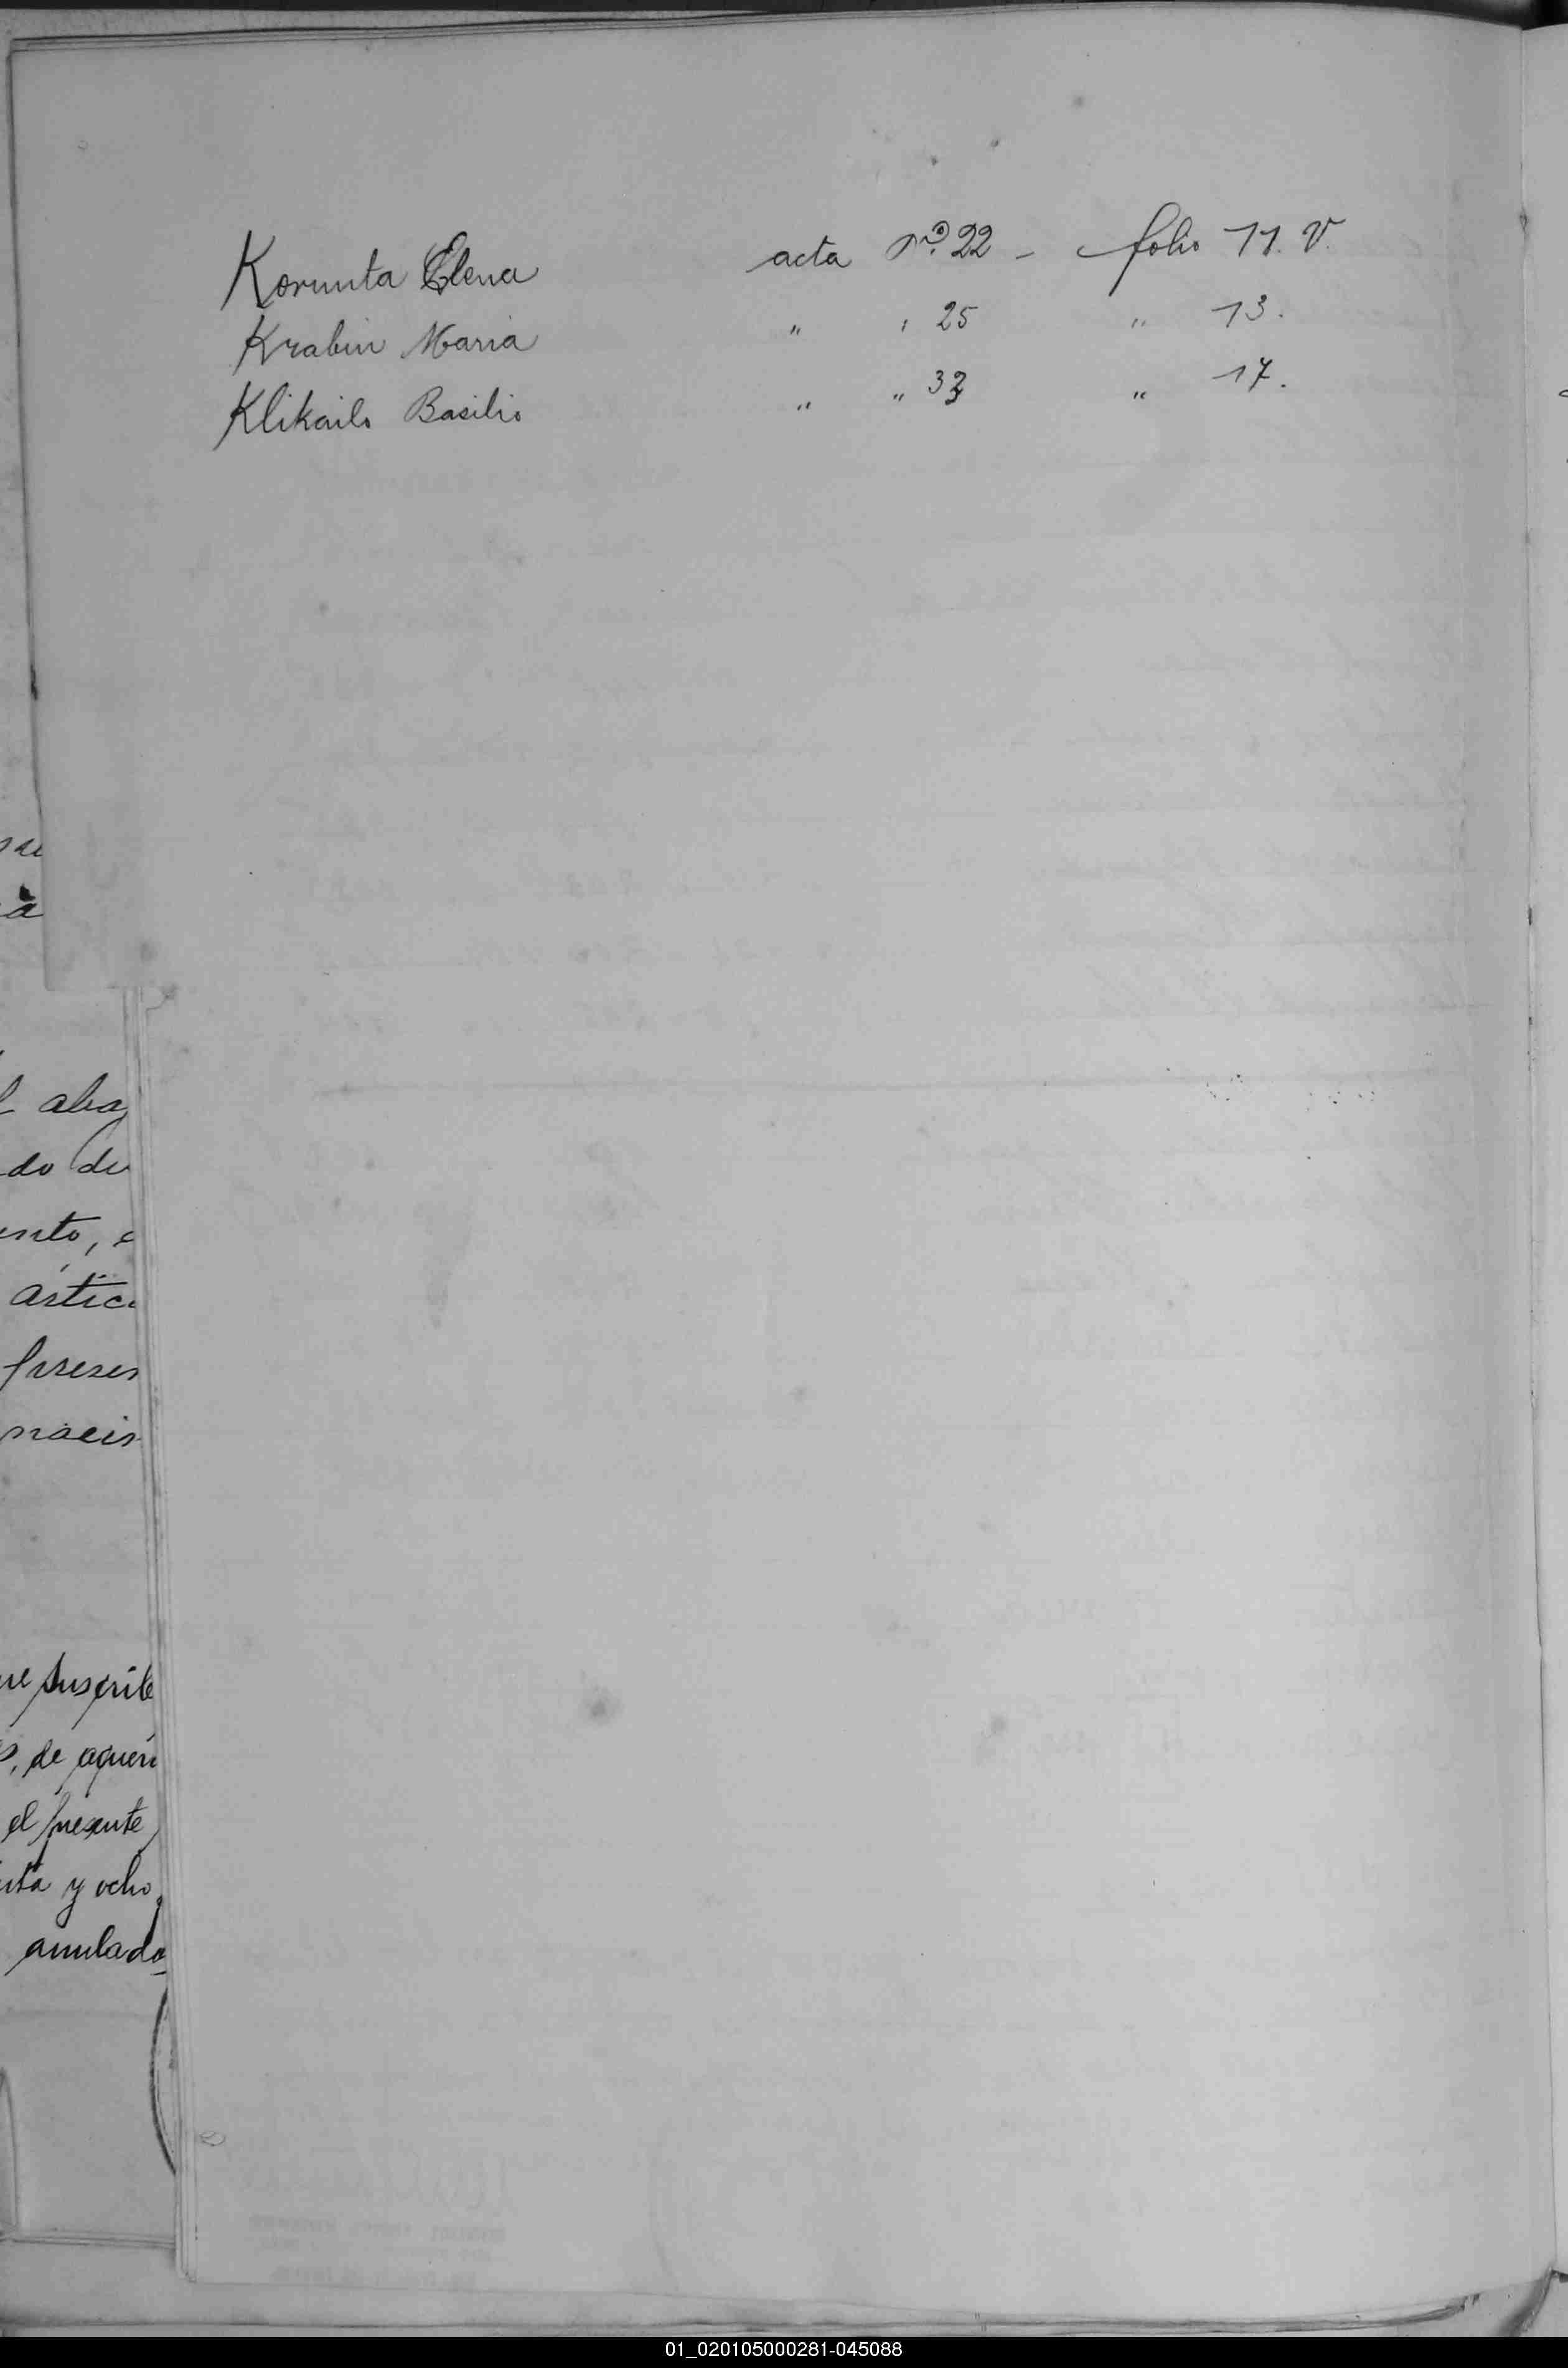 Korunta Elena acta Nº. 22 - folio 11. V.
Krabin Maria " " 25 " 13.
Klikailo Basilio " " 33 " 17.
aba
do de
ento, e
artic
presen
nacio
re suscribe
s, de aquen
el presente
nta y ocho
anulado
01_020105000281-045088